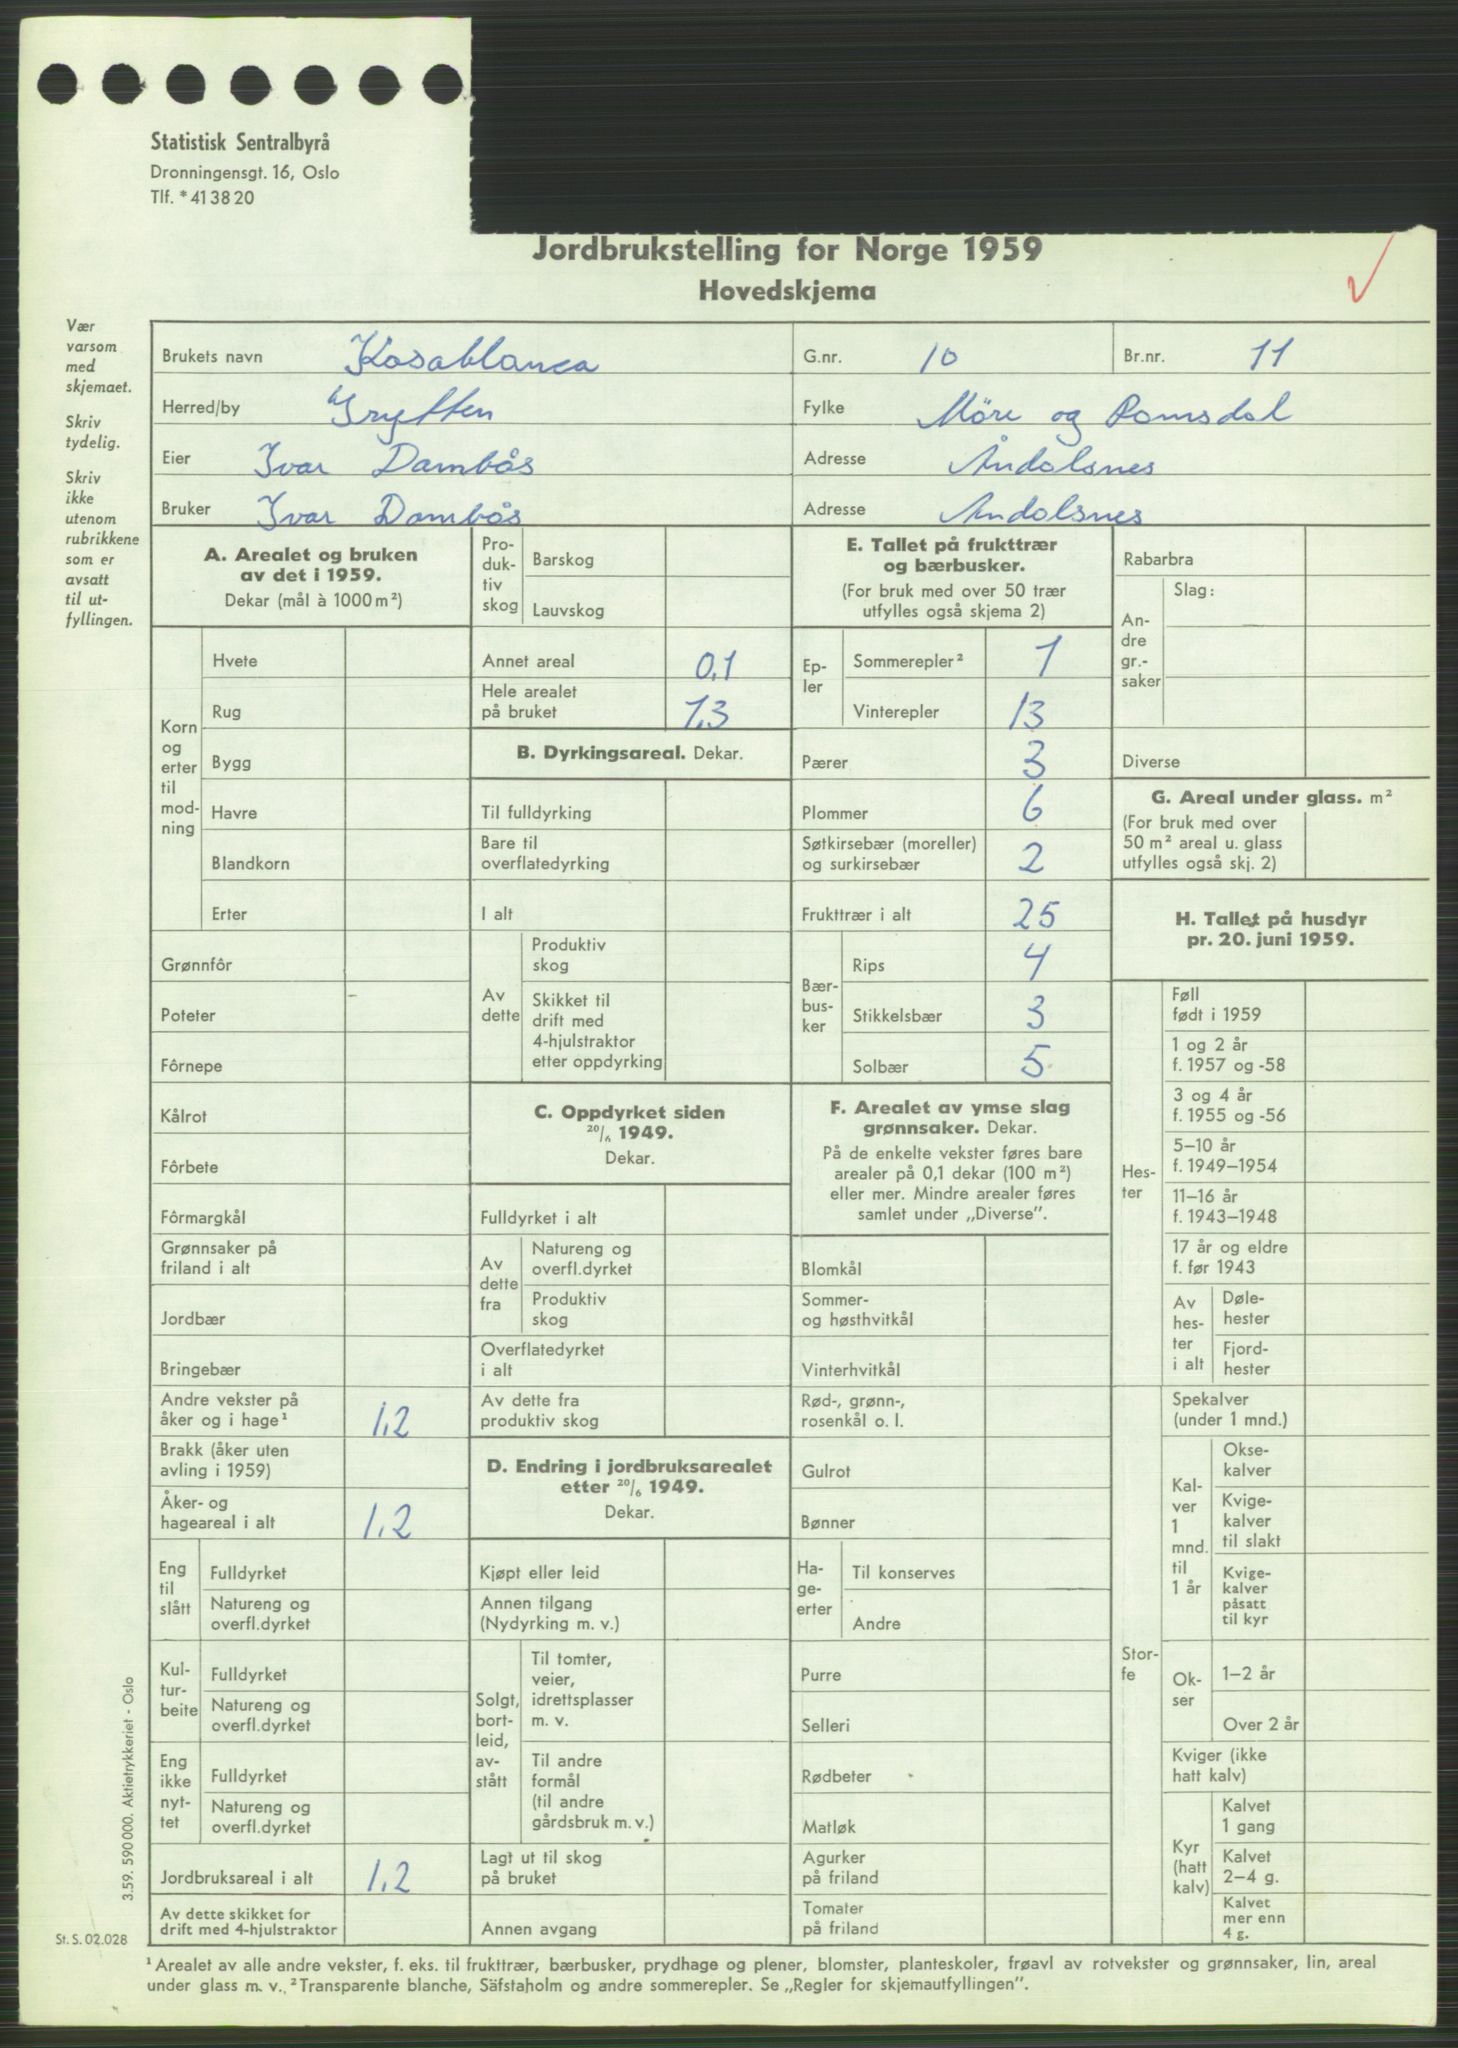 Statistisk Sentralbyrå
Dronningensgt. 16, Oslo
Tlf. * 41 38 20
Jordbrukstelling for Norge 1959
Hovedskjema
Vær
varsom
med
skjemaet.
Skriv
tydelig.
Skriv
ikke
utenom
rubrikkene
som er
avsatt
til ut-
fyllingen.
Brukets navn Kasablanca G.nr. 10 Br.nr. 11
Herred/by Grytten Fylke Möre og Romsdal
Eier Ivar Dambås Adresse Åndalsnes
Bruker Ivar Dambås Adresse Åndalsnes
A. Arealet og bruken
av det i 1959.
Dekar (mål à 1000 m²)
Korn
og
erter
til
mod-
ning
Hvete
Rug
Bygg
Havre
Blandkorn
Erter
Grønnfôr
Poteter –
Fôrnepe
Kålrot
Fôrbete
Fôrmargkål
Grønnsaker på
friland i alt
Jordbær
Bringebær
Andre vekster på
åker og i hage¹ 1,2
Brakk (åker uten
avling i 1959)
Åker- og
hageareal i alt 1,2
Eng
til
slått
Fulldyrket
Natureng og
overfl.dyrket
Kul-
tur-
beite
Fulldyrket
Natureng og
overfl.dyrket
Eng
ikke
nyt-
tet
Fulldyrket
Natureng og
overfl.dyrket
Jordbruksareal i alt 1,2
Av dette skikket for
drift med 4-hjulstraktor
Pro-
duk-
tiv
skog
Barskog
Lauvskog
Annet areal 0,1
Hele arealet
på bruket 1,3
B. Dyrkingsareal. Dekar.
Til fulldyrking
Bare til
overflatedyrking
I alt
Av
dette
Produktiv
skog
Skikket til
drift med
4-hjulstraktor
etter oppdyrking
C. Oppdyrket siden
20/6 1949.
Dekar.
Fulldyrket i alt
Av
dette
fra
Natureng og
overfl.dyrket
Produktiv
skog
Overflatedyrket
i alt
Av dette fra
produktiv skog
D. Endring i jordbruksarealet
etter 20/6 1949.
Dekar.
Kjøpt eller leid
Annen tilgang
(Nydyrking m. v.)
Solgt,
bort-
leid,
av-
stått
Til tomter,
veier,
idrettsplasser
m. v.
Til andre
formål
(til andre
gårdsbruk m. v.)
Lagt ut til skog
på bruket
Annen avgang
E. Tallet på frukttrær
og bærbusker.
(For bruk med over 50 trær
utfylles også skjema 2)
Ep-
ler
Sommerepler² 1
Vinterepler 13
Pærer 3
Plommer 6
Søtkirsebær (moreller)
og surkirsebær 2
Frukttrær i alt 25
Bær-
bus-
ker
Rips 4
Stikkelsbær 3
Solbær 5
F. Arealet av ymse slag
grønnsaker. Dekar.
På de enkelte vekster føres bare
arealer på 0,1 dekar (100 m²)
eller mer. Mindre arealer føres
samlet under „Diverse”.
Blomkål
Sommer-
og høsthvitkål
Vinterhvitkål
Rød-, grønn-,
rosenkål o. l.
Gulrot
Bønner
Ha-
ge-
erter
Til konserves
Andre
Purre
Selleri
Rødbeter
Matløk
Agurker
på friland
Tomater
på friland
Rabarbra
An-
dre
gr.-
saker
Slag:
Diverse
G. Areal under glass. m²
(For bruk med over
50 m² areal u. glass
utfylles også skj. 2)
H. Tallet på husdyr
pr. 20. juni 1959.
Hes-
ter
Føll
født i 1959
1 og 2 år
f. 1957 og -58
3 og 4 år
f. 1955 og -56
5–10 år
f. 1949–1954
11–16 år
f. 1943–1948
17 år og eldre
f. før 1943
Av
hes-
ter
i alt
Døle-
hester
Fjord-
hester
Stor-
fe
Spekalver
(under 1 mnd.)
Kal-
ver
1
mnd.
til
1 år
Okse-
kalver
Kvige-
kalver
til slakt
Kvige-
kalver
påsatt
til kyr
Ok-
ser
1–2 år
Over 2 år
Kviger (ikke
hatt kalv)
Kyr
(hatt
kalv)
Kalvet
1 gang
Kalvet
2–4 g.
Kalvet
mer enn
4 g.
3.59. 590 000. Aktietrykkeriet - Oslo
St. S. 02.028
¹ Arealet av alle andre vekster, f. eks. til frukttrær, bærbusker, prydhage og plener, blomster, planteskoler, frøavl av rotvekster og grønnsaker, lin, areal
under glass m. v. ² Transparente blanche, Säfstaholm og andre sommerepler. Se „Regler for skjemautfyllingen”.